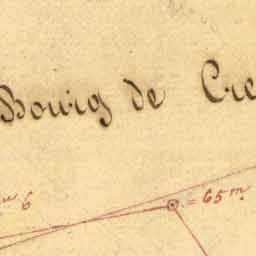 Bourg de Cre
6
= 65 m.